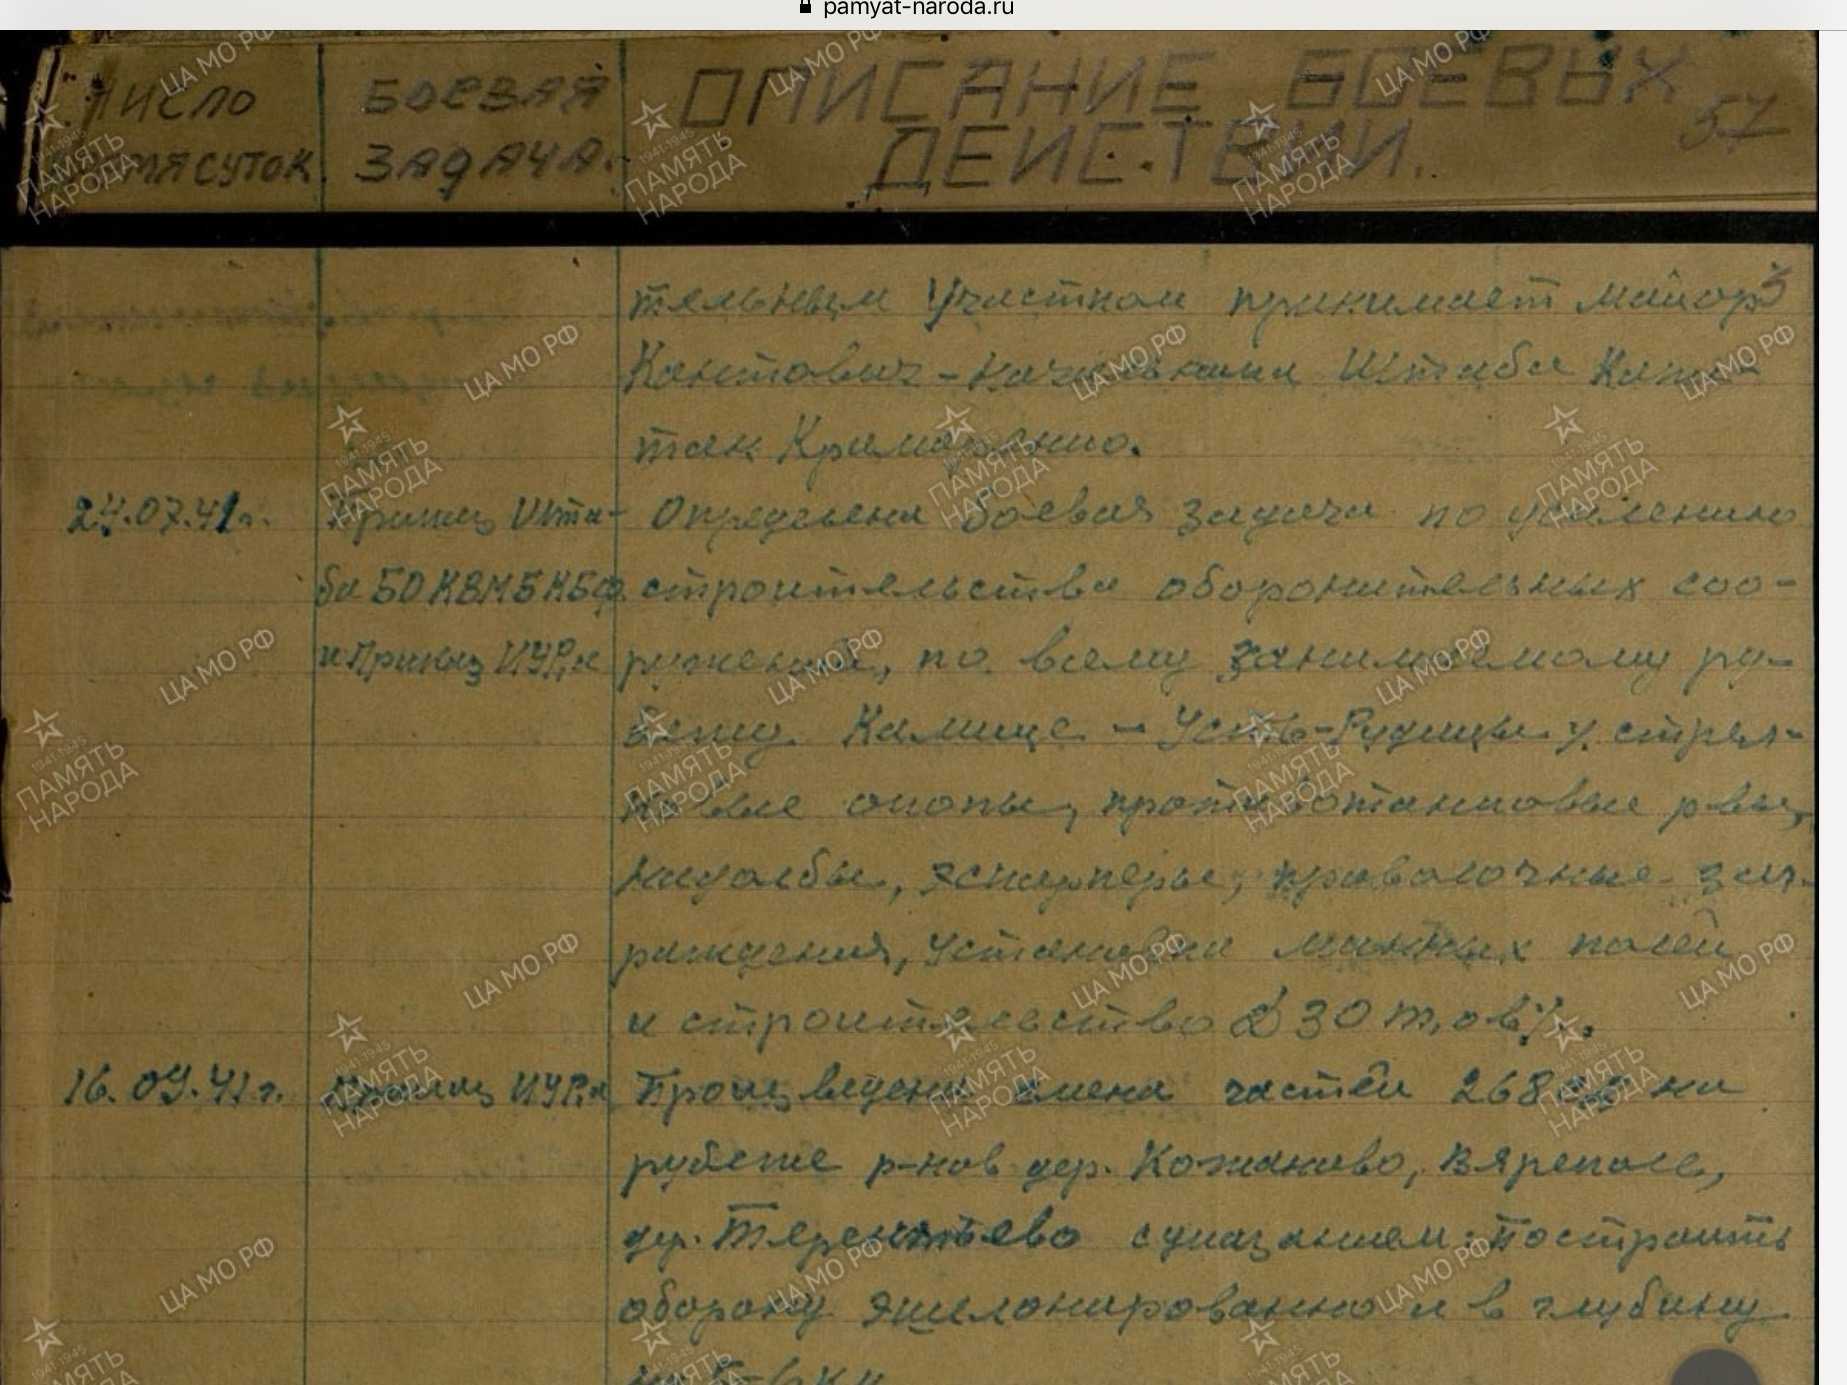 pamyat-naroda.ru
ЧИСЛО БОЕВАЯ ОПИСАНИЕ БОЕВЫХ 57
СУТОК ЗАДАЧА. ДЕЙСТВИЙ.
тельным Участком принимает майор
Кантович - начальника Штаба
Крамаренко.
24.07.41г. Приказ Шта- Определена боевая задача по усилению
ба БОКВМБ КБФ строительства оборонительных соо-
и Приказ ИУРа ружений, по всему занимаемому ру-
бежу - Усть-Рудицы: стрел-
ковые окопы, противотанковые рвы,
надолбы, эскарперы, проволочные заг-
раждения, установка минных полей
и строительство 30
16.09.41г. Приказ ИУРа Произведена смена частей 268 на
рубеже р-нов дер. Кожаново, Вяреполе,
дер. Терентьево с указанием: построить
оборону эшелонированной в глубину
ЦА МО РФ
ПАМЯТЬ НАРОДА
1941-1945